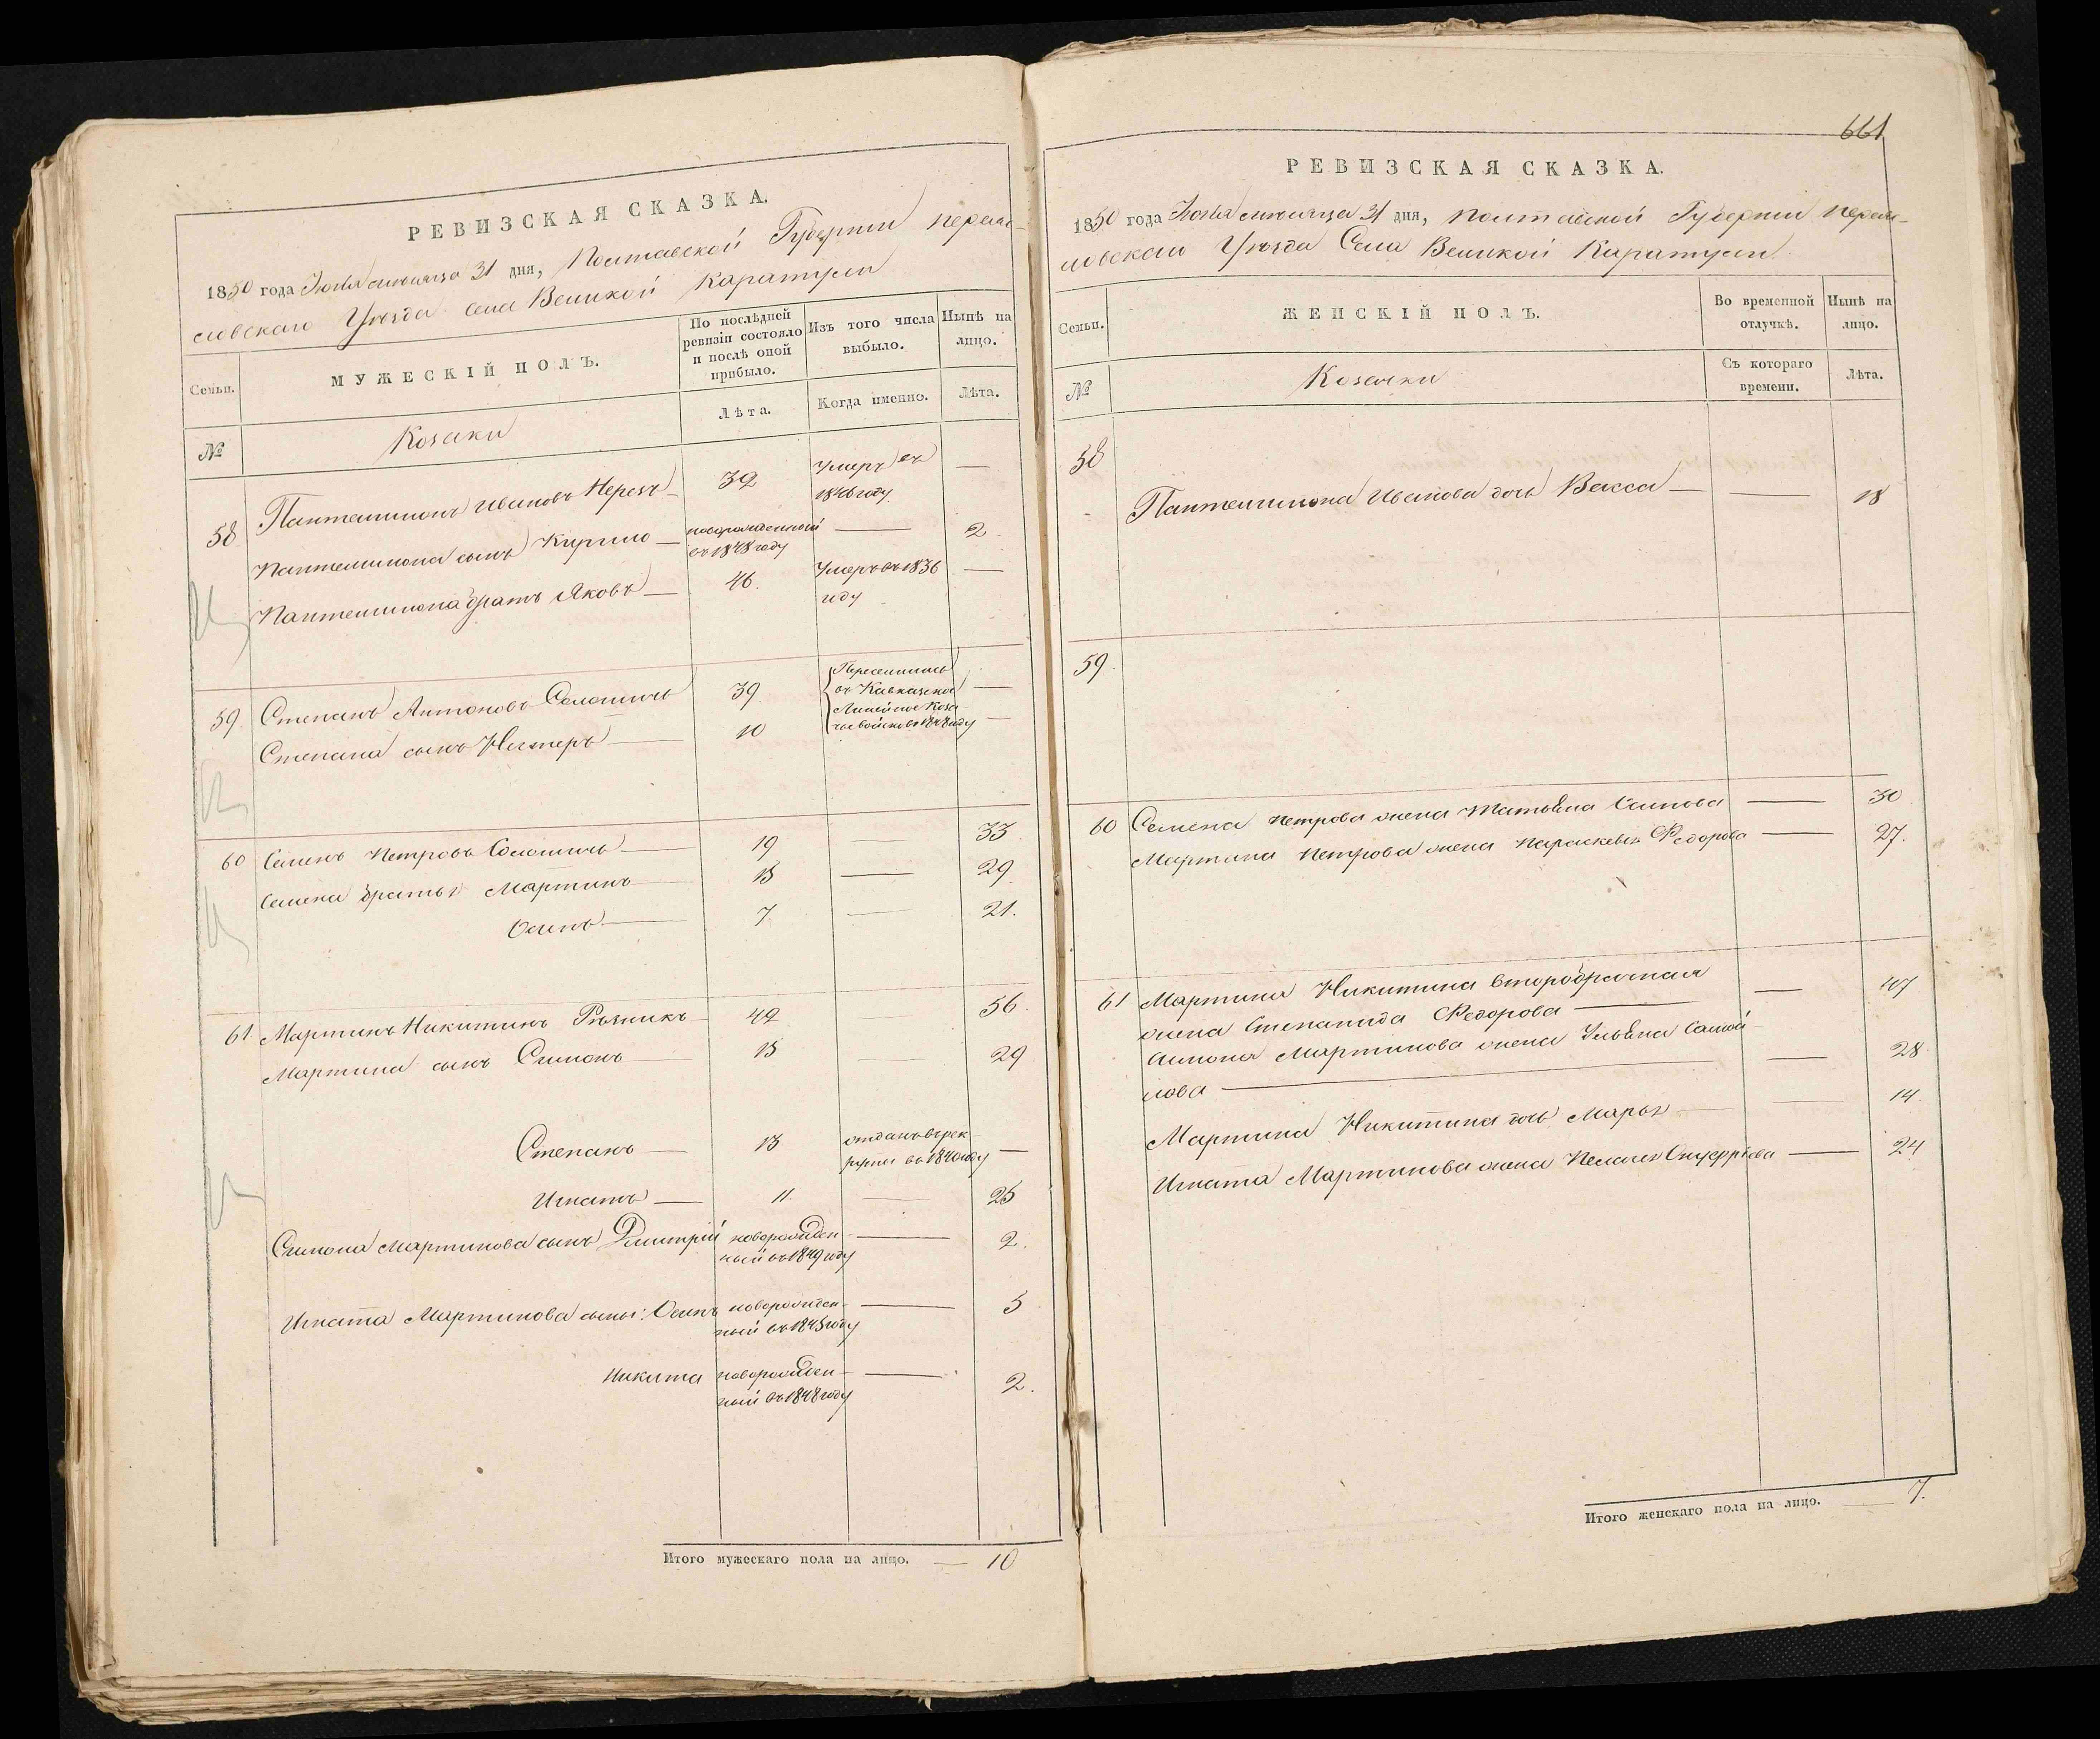 РЕВИЗСКАЯ СКАЗКА.
1850 года Июля месяца 31 дня, Полтавской Губернии Переяс-
ловского Уѣзда Села Великой Каратули
Семьи.
МУЖЕСКІЙ ПОЛЪ.
По послѣдней ревизіи состояло и послѣ оной прибыло.
Изъ того числа выбыло.
Нынѣ на лицо.
№
Козаки
Лѣта.
Когда именно.
Лѣта.
58 Пантелимонъ Ивановъ 32 Умеръ въ 1846 году —
Пантелимона сынъ Кирило — новорожденный въ 1848 году — 2
Пантелимона братъ Яковъ — 46. Умеръ въ 1836 году —
59. Степанъ Антоновъ Соломичъ 39 Переселились въ Кавказское Линейное Коза-
чье войско въ 1848 году —
Степана сынъ Нестеръ — 10 —
60 Семенъ Петровъ Соломичъ — 19 — 33.
Семена братья Мартинъ — 15 — 29
Осипъ — 7. — 21.
61 Мартинъ Никитинъ Рѣзникъ 42 — 56.
Мартина сынъ Симонъ — 15 — 29
Степанъ — 13 отданъ въ рек-
руты въ 1840 году —
Игнатъ — 11. — 25
Симона Мартинова сынъ Дмитрій новорожден-
ный въ 1849 году — 2.
Игната Мартинова сыны: Осипъ новорожден-
ный въ 1845 году — 5
Никита новорожден-
ный въ 1848 году — 2.
Итого мужескаго пола на лицо. — 10
661
РЕВИЗСКАЯ СКАЗКА.
1850 года Июля месяца 31 дня, Полтавской Губернии Переяс-
ловского Уѣзда Села Великой Каратули
Семьи.
ЖЕНСКІЙ ПОЛЪ.
Во временной отлучкѣ.
Нынѣ на лицо.
№
Козачки
Съ котораго времени.
Лѣта.
58
Пантелимона Иванова дочь Векса — — 18
59.
60 Семена Петрова жена Татьяна Саитова — 30
Мартина Петрова жена Параскевія Федорова — 27.
61 Мартина Никитина второбрачная
жена Степанида Федорова — — 47
Симона Мартинова жена Ульяна Самой-
лова — — 28
Мартина Никитина дочь Марья — 14.
Игната Мартинова жена Пелагея Онуфріева — 24
Итого женскаго пола на лицо. — 7.